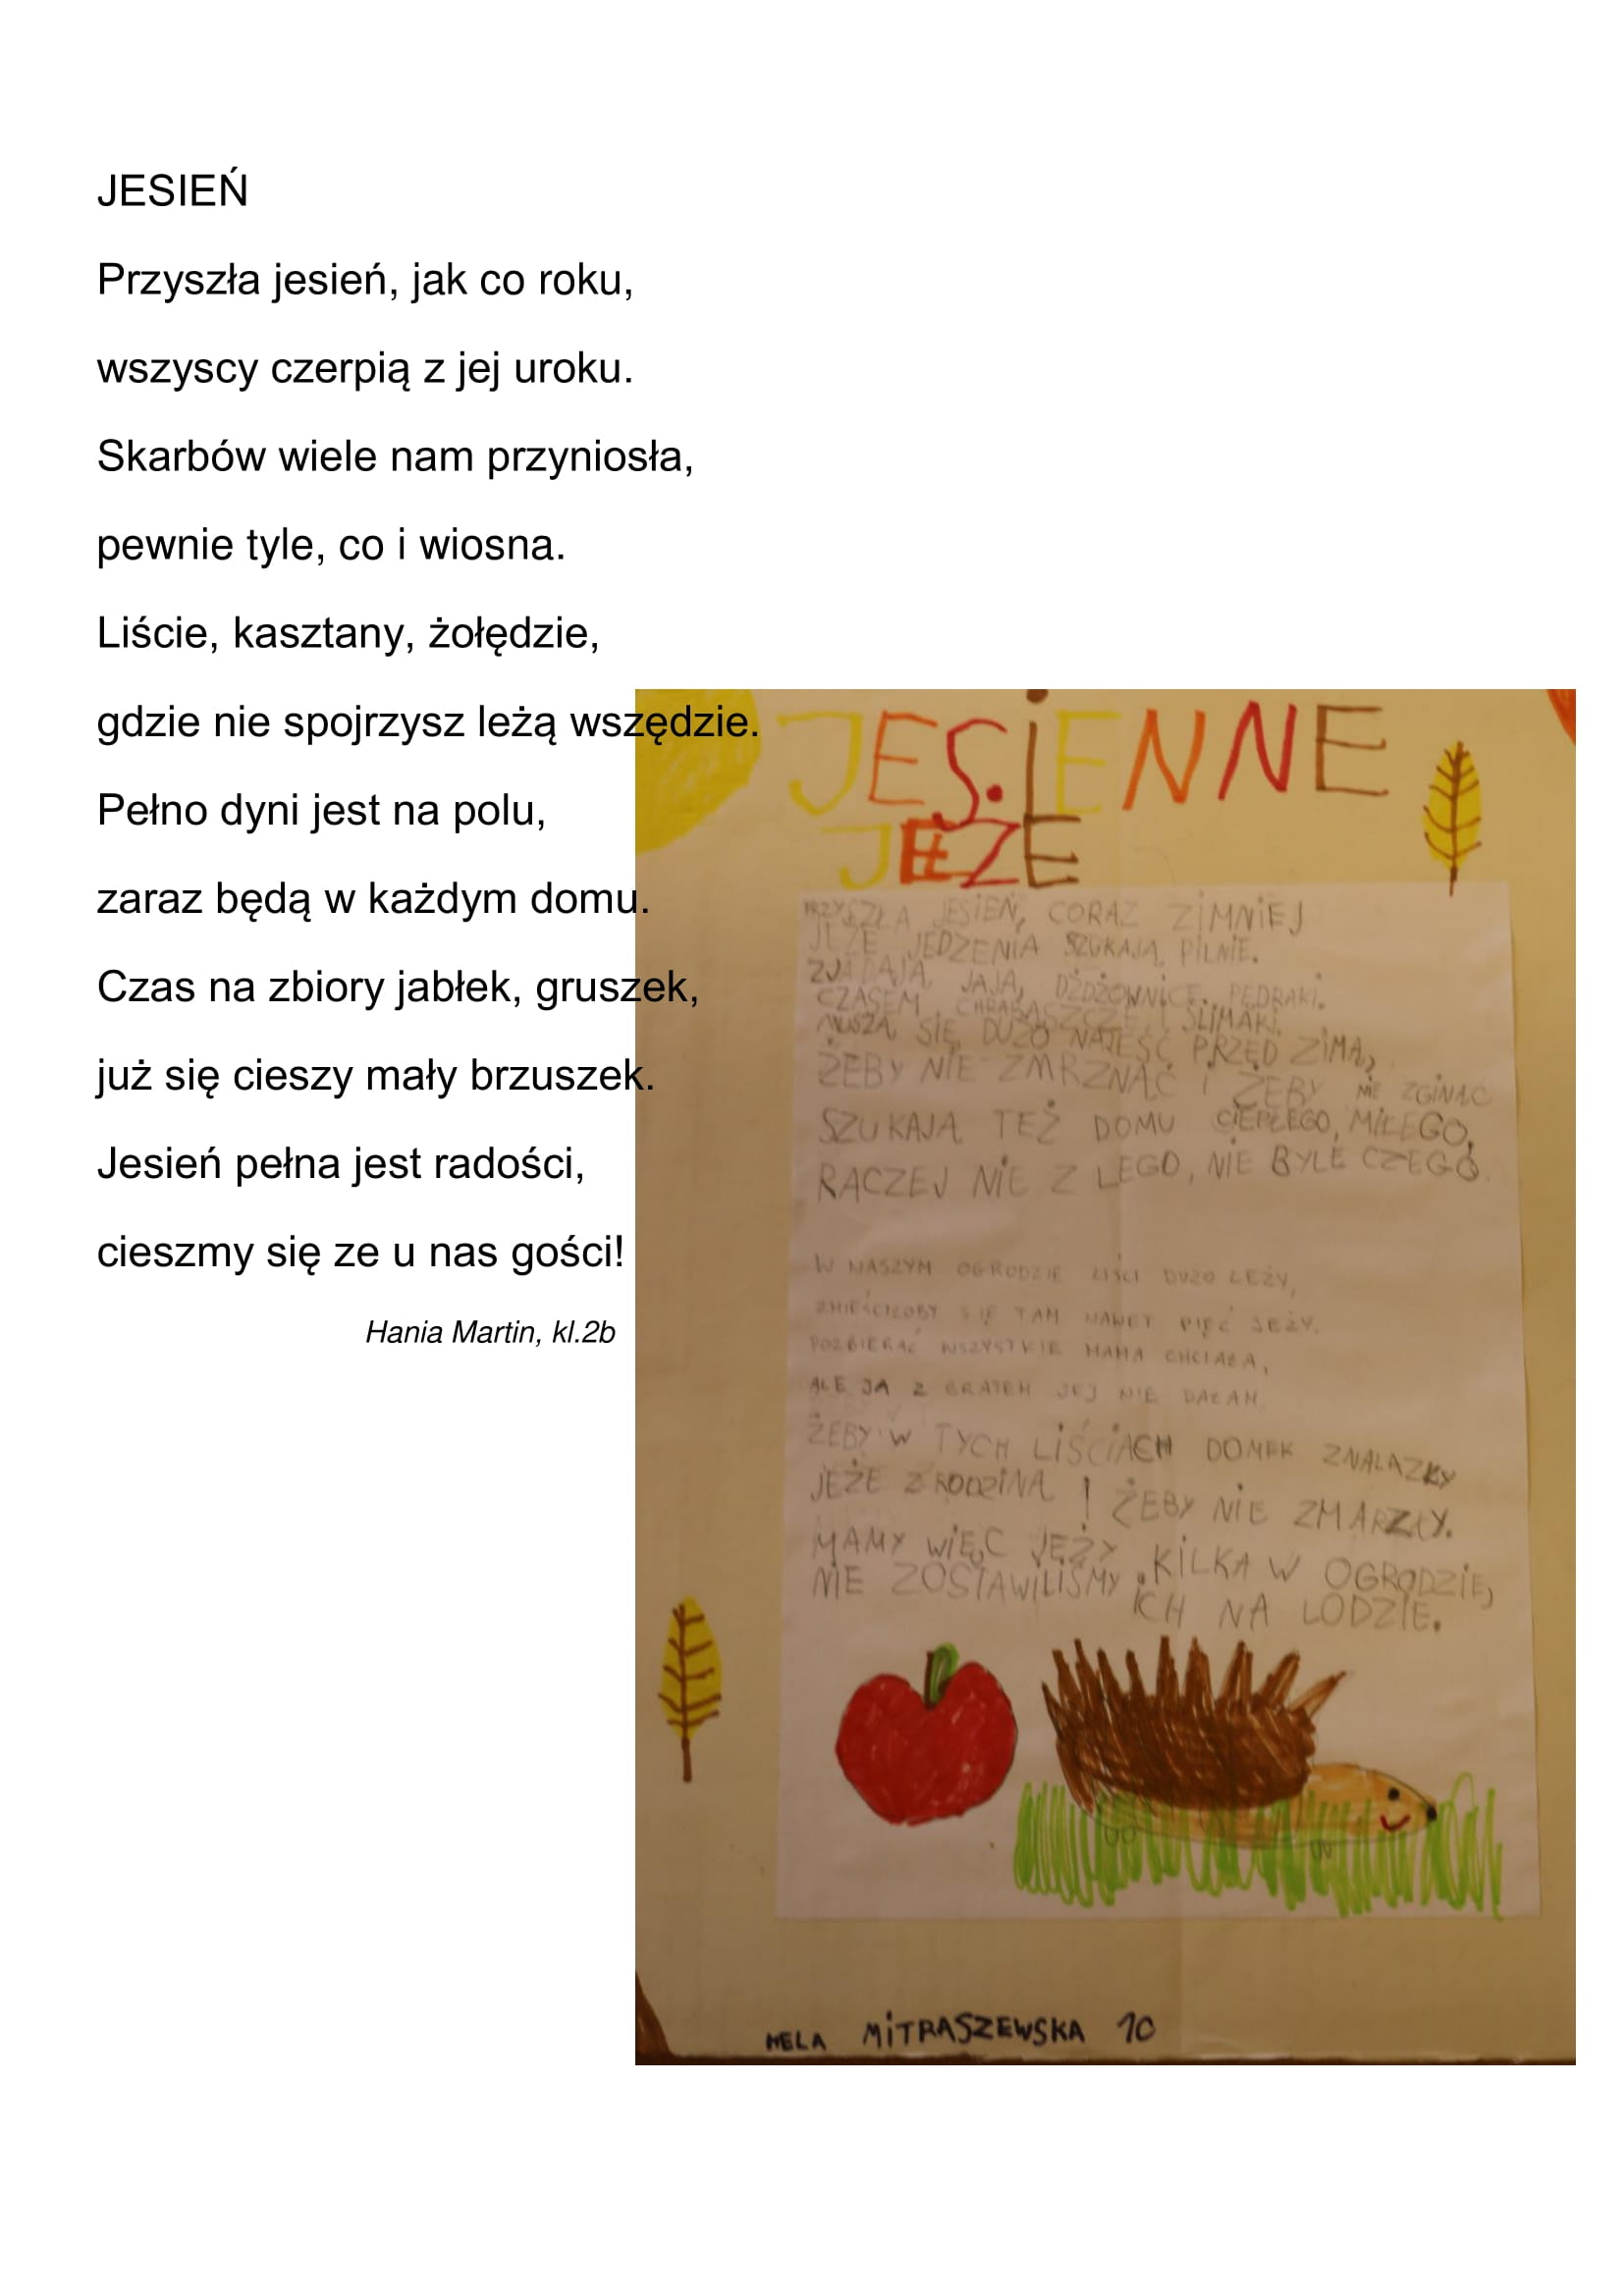 JESIEŃ
Przyszła jesień, jak co roku,
wszyscy czerpią z jej uroku.
Skarbów wiele nam przyniosła,
pewnie tyle, co i wiosna.
Liście, kasztany, żołędzie,
gdzie nie spojrzysz leżą wszędzie.
Pełno dyni jest na polu,
zaraz będą w każdym domu.
Czas na zbiory jabłek, gruszek,
już się cieszy mały brzuszek.
Jesień pełna jest radości,
cieszmy się ze u nas gości!
Hania Martin, kl.2b
JESIENNE
JEŻE
PRZYSZŁA JESIEŃ, CORAZ ZIMNIEJ
JEŻE JEDZENIA SZUKAJĄ PILNIE.
ZJADAJĄ JAJA, DŻDŻOWNICE, PĘDRAKI.
CZASEM CHRABĄSZCZE I ŚLIMAKI.
MUSZĄ SIĘ DUŻO NAJEŚĆ PRZED ZIMĄ,
ŻEBY NIE ZMRZNĄĆ I ŻEBY NIE ZGINĄĆ
SZUKAJĄ TEŻ DOMU CIEPŁEGO, MIŁEGO,
RACZEJ NIE Z LEGO, NIE BYLE CZEGO.
W NASZYM OGRODZIE LIŚCI DUŻO LEŻY,
ZMIEŚCIŁOBY SIĘ TAM NAWET PIĘĆ JEŻY.
POZBIERAĆ WSZYSTKIE MAMA CHCIAŁA,
ALE JA Z BRATEM JEJ NIE DAŁAM
ŻEBY W TYCH LIŚCIACH DOMEK ZNALAZŁY
JEŻE Z RODZINĄ I ŻEBY NIE ZMARZŁY.
MAMY WIĘC JEŻY KILKA W OGRODZIE,
NIE ZOSTAWILIŚMY ICH NA LODZIE.
MELA MITRASZEWSKA 1C